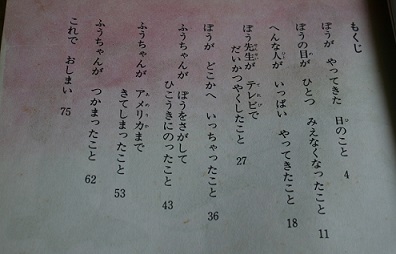 もくじ
ぼうが やってきた 日のこと 4
ぼうの目が ひとつ みえなくなったこと 11
へんな人が いっぱい やってきたこと 18
ぼう先生が テレビで
だいかつやくしたこと 27
ぼうが どこかへ いっちゃったこと 36
ふうちゃんが ぼうをさがして
ひこうきにのったこと 43
ふうちゃんが アメリカまで
きてしまったこと 53
ふうちゃんが つかまったこと 62
これで おしまい 75